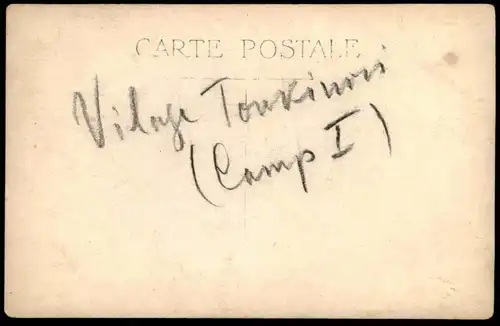 CARTE POSTALE
Vilage Tonkinois
(Camp I)